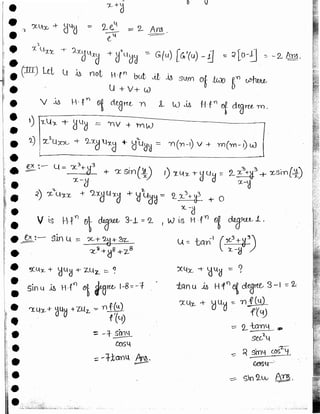 x+y
, xux + yuy = 2e^u / e^u = 2 Ans.
x²uxx + 2xyuxy + y²uyy = G(u) [G'(u) - 1] = 2[0-1] = -2 Ans.
(III) Let u is not H.fⁿ but it is sum of two fⁿ where
u = v + w
v is H.fⁿ of degree n & w is H.fⁿ of degree m.
1) xux + yuy = nv + mw
2) x²uxx + 2xyuxy + y²uyy = n(n-1)v + m(m-1)w
ex :- u = x³+y³ / x-y + x sin(y/x) 1) xux + yuy = 2 x³+y³ / x-y + x sin(y/x)
2) x²uxx + 2xyuxy + y²uyy = 2 x³+y³ / x-y + 0
v is H.fⁿ of degree 3-1=2 , w is H.fⁿ of degree 1.
ex :- sin u = x+2y+3z / x⁸+y⁸+z⁸ u = tan⁻¹ (x³+y³ / x-y)
xux + yuy + zuz = ? xux + yuy = ?
sin u is H.fⁿ of degree 1-8=-7 tan u is H.fⁿ of degree 3-1=2
xux + yuy + zuz = n f(u) / f'(u) xux + yuy = n f(u) / f'(u)
= -7 sin u / cos u = 2 tan u / sec²u
= -7 tan u Ans. = 2 sin u cos²u / cos u
= sin 2u Ans.